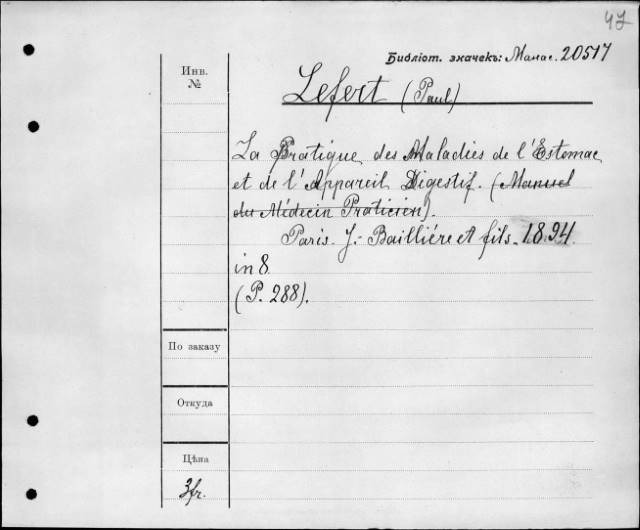 47
Библіот. значекъ: Манас. 20517
Инв.
№
Lefert (Paul)
La Pratique des Maladies de l'Estomac
et de l'Appareil Digestif. (Manuel
du Médecin Praticien).
Paris. J.- Baillière et fils. 1894.
in 8
(P. 288).
По заказу
Откуда
Цѣна
3fr.